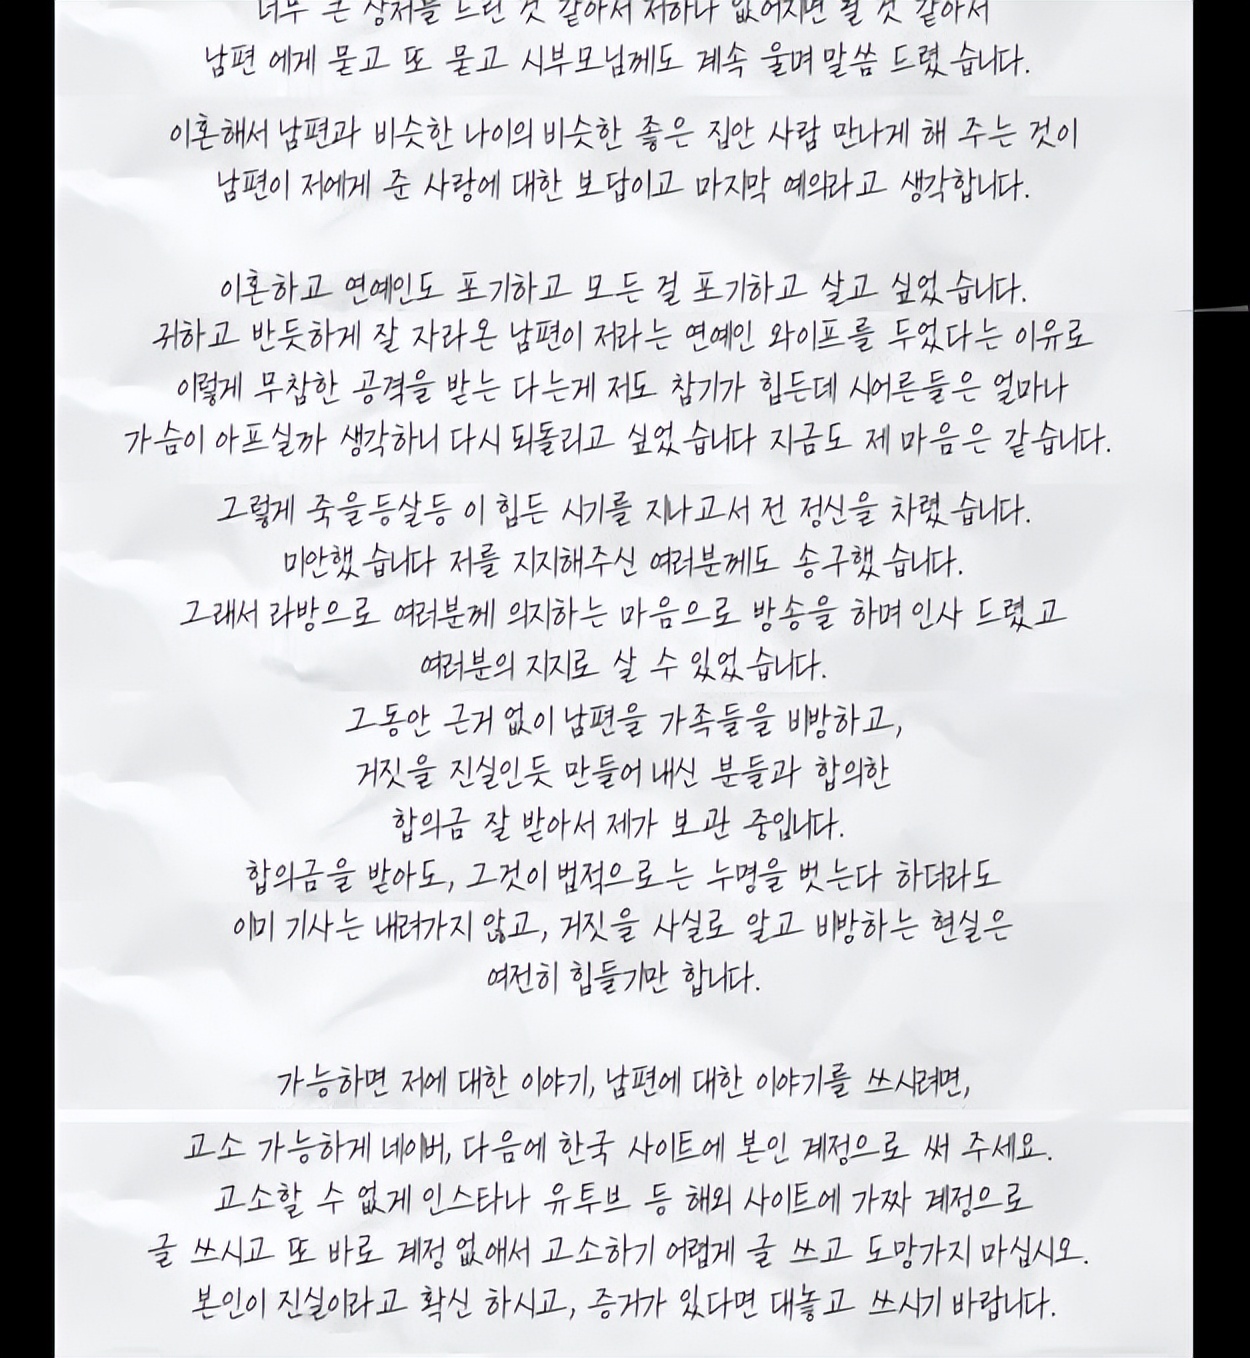 너무 큰 상처를 드린 것 같아서 저하나 없어지면 될 것 같아서
남편 에게 묻고 또 묻고 시부모님께도 계속 울며 말씀 드렸 습니다.
이혼해서 남편과 비슷한 나이의 비슷한 좋은 집안 사람 만나게 해 주는 것이
남편이 저에게 준 사랑에 대한 보답이고 마지막 예의라고 생각합니다.
이혼하고 연예인도 포기하고 모든 걸 포기하고 살고 싶었 습니다.
귀하고 반듯하게 잘 자라온 남편이 저라는 연예인 와이프를 두었다는 이유로
이렇게 무참한 공격을 받는 다는게 저도 참기가 힘든데 시어른들은 얼마나
가슴이 아프실까 생각하니 다시 되돌리고 싶었 습니다 지금도 제 마음은 같습니다.
그렇게 죽을등살등 이 힘든 시기를 지나고서 전 정신을 차렸 습니다.
미안했 습니다 저를 지지해주신 여러분께도 송구했 습니다.
그래서 라방으로 여러분께 의지하는 마음으로 방송을 하며 인사 드렸 고
여러분의 지지로 살 수 있었 습니다.
그동안 근거 없이 남편을 가족들을 비방하고,
거짓을 진실인듯 만들어 내신 분들과 합의한
합의금 잘 받아서 제가 보관 중입니다.
합의금을 받아도, 그것이 법적으로는 누명을 벗는다 하더라도
이미 기사는 내려가지 않고, 거짓을 사실로 알고 비방하는 현실은
여전히 힘들기만 합니다.
가능하면 저에 대한 이야기, 남편에 대한 이야기를 쓰시려면,
고소 가능하게 네이버, 다음에 한국 사이트에 본인 계정으로 써 주세요.
고소할 수 없게 인스타나 유투브 등 해외 사이트에 가짜 계정으로
글 쓰시고 또 바로 계정 없애서 고소하기 어렵게 글 쓰고 도망가지 마십시오.
본인이 진실이라고 확신 하시고, 증거가 있다면 대놓고 쓰시기 바랍니다.